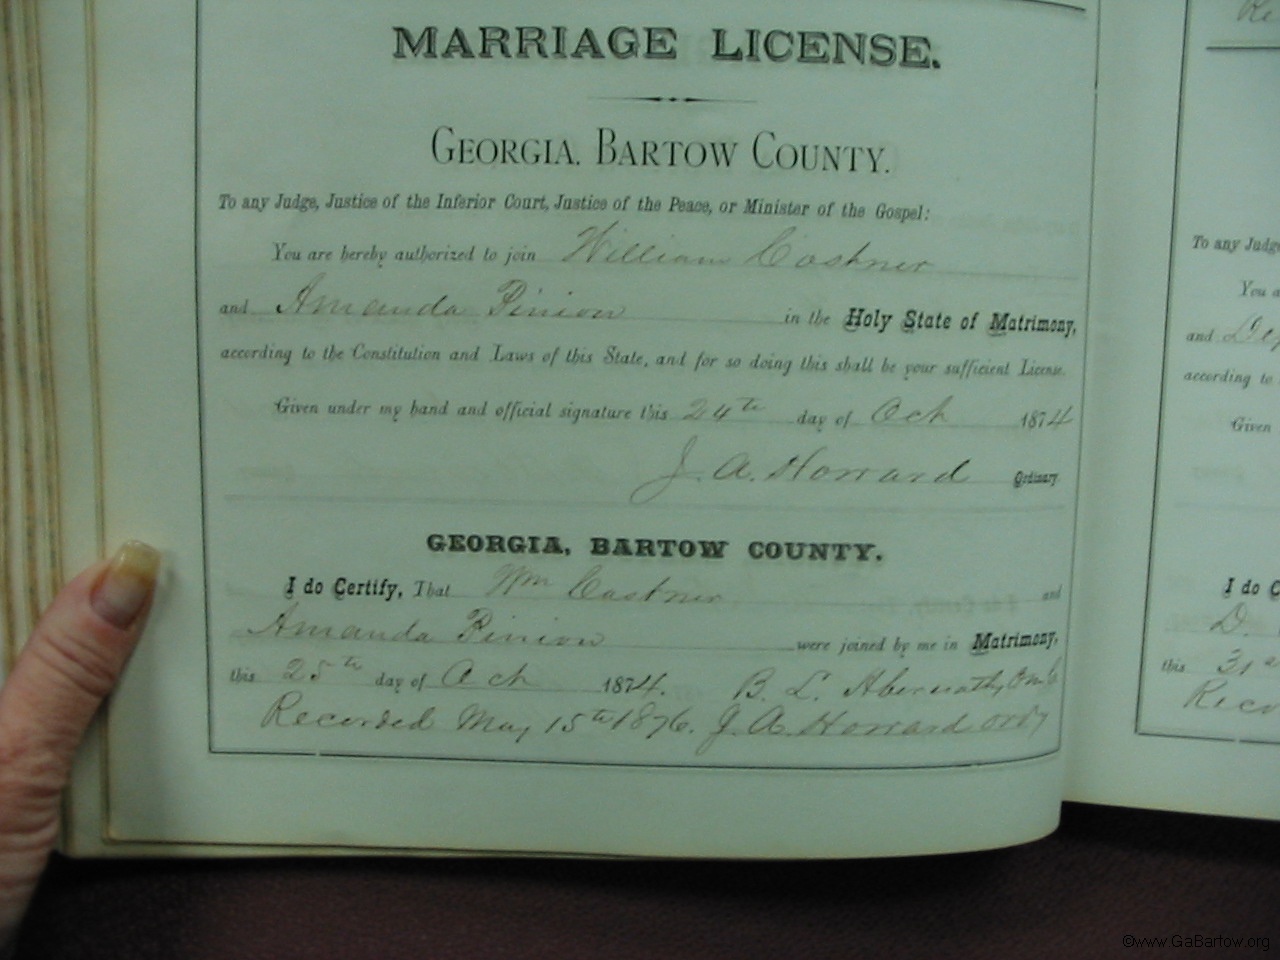 MARRIAGE LICENSE.
GEORGIA, BARTOW COUNTY.
To any Judge, Justice of the Inferior Court, Justice of the Peace, or Minister of the Gospel:
You are hereby authorized to join William Costner
and Amanda Pinion in the Holy State of Matrimony,
according to the Constitution and Laws of this State, and for so doing this shall be your sufficient License.
Given under my hand and official signature this 24th day of Oct 1874
J. A. Howard Ordinary
GEORGIA, BARTOW COUNTY.
I do Certify, That Wm Costner and
Amanda Pinion were joined by me in Matrimony,
this 25th day of Oct 1874. B. L. Abernathy
Recorded May 15th 1876. J. A. Howard Ordy
To any Judge
You a
and
according to
Given
I do C
D.
this 31st
Reco
©www.GaBartow.org